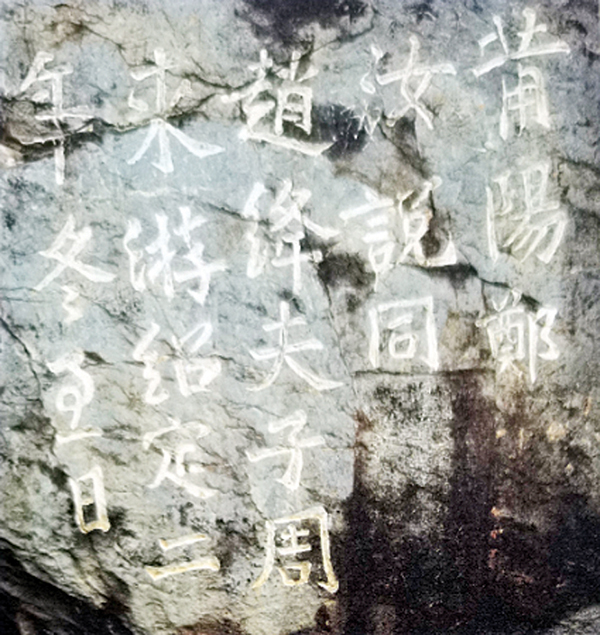 莆陽鄭
汝說同
趙絳夫子周
来游紹定二
年冬至日